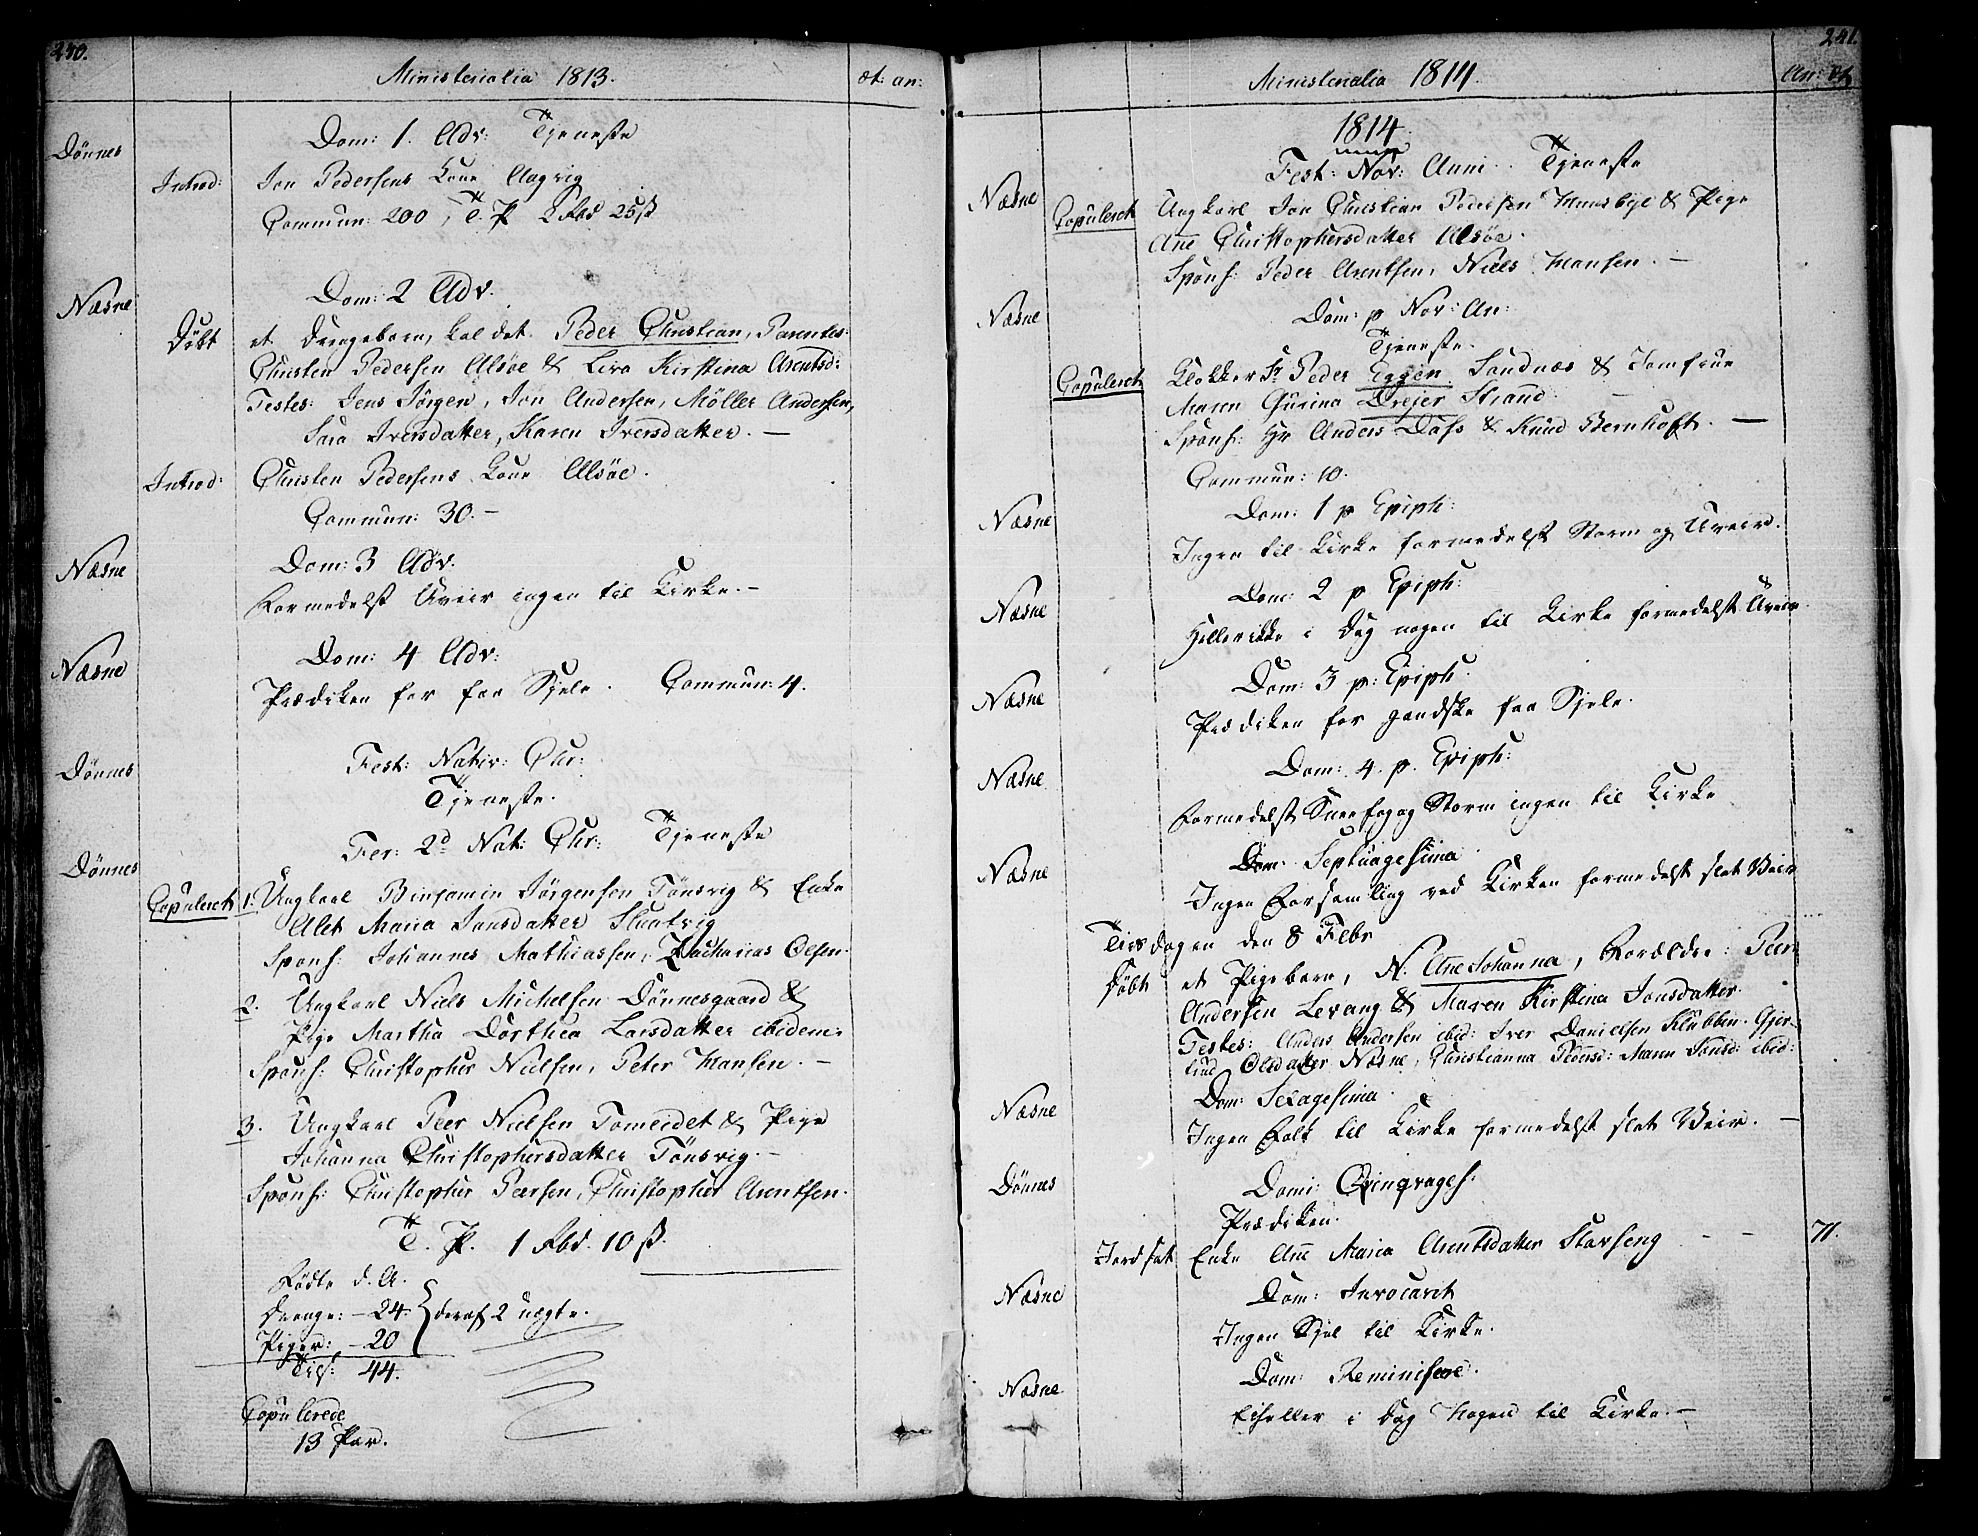 240.
Ministerialia 1813.
æt: an:
Dönnes
Dom: 1. Adv: Tjeneste
Introd: Jon Pedersens Kone Aagvig
Commun: 200, T. P. 2 Rbd 25 ß
Næsne
Dom: 2 Adv.
Döbt et Drengebarn, kaldet. Peder Christian, Parentes:
Christen Pedersen Alsöe & Liva Kirstina Arentsd:
Testes: Jens Jörgen, Jon Andersen, Möller Andersen,
Sara Iversdatter, Karen Iversdatter. —
Introd: Christen Pedersens Kone Alsöe.
Commun: 30. —
Næsne
Dom: 3 Adv.
Formedelst Uveir ingen til Kirke. —
Næsne
Dom: 4 Adv:
Prædiken for faa Sjele. Commun: 4.
Dönnes
Fest: Nativ: Chr:
Tjeneste.
Dönnes
Fer: 2d Nat: Chr: Tjeneste
Copuleret 1. Ungkarl Binjamin Jörgensen Tönsvig & Enke
Alet Maria Jansdatter Sluatvig
Spons: Johannes Mathiassen, Zacharias Olsen.
2. Ungkarl Niels Michelsen Dönnesgaard &
Pige Martha Dorthea Larsdatter ibidem.
Spons: Christopher Nielsen, Peter Hansen. —
3. Ungkarl Peer Nielsen Tomeidet & Pige
Johanna Christophersdatter Tönsvig. —
Spons: Christopher Persen, Christopher Arentsen.
T. P. 1 Rbd. 10 ß.
Födte d. A.
Drenge: — 24. } deraf 2 uægte.
Piger: — 20
Tils: 44.
Copulerede
13 Par.
241.
Ministerialia 1814.
An: æt
1814.
Næsne
Fest: Nov: Anni. Tjeneste
Copuleret Ungkarl Jon Christian Pedersen Huusbye & Pige
Ane Christophersdatter Alsöe.
Spons: Peder Arentsen, Niels Hansen. —
Næsne
Dom: p Nov: An:
Tjeneste.
Copuleret Klokker Sr Peder Eggen Sandnæs & Jomfrue
Maren Gurina Drejer Strand.
Spons: Hr Anders Dass & Knud Bernhoft. —
Commun: 10.
Næsne
Dom: 1 p Epiph:
Ingen til Kirke formedelst Storm og Uveir.
Næsne
Dom: 2 p Epiph:
Heller ikke i Dag nogen til Kirke formedelst Uveir.
Næsne
Dom: 3 p: Epiph.
Prædiken for gandske faa Sjele.
Næsne
Dom: 4. p. Epiph:
Formedelst Sneefog og Storm ingen til Kirke
Næsne
Dom: Septuagesima
Ingen Forsamling ved Kirken formedelst slet Veir
Tirsdagen den 8 Febr
Döbt et Pigebarn, N. Ane Johanna, Forældre: Peer
Andersen Levang & Maren Kirstina Jonsdatter.
Testes: Anders Andersen ibid: Iver Danielsen Klubben. Gjer-
trud Olsdatter Næsne, Christianna Pedersd: Maren Jonsd: ibid:
Næsne
Dom: Sexagesima.
Ingen Folk til Kirke formedelst slet Veir. —
Dönnes
Domi: Qvinqvages.
Prædiken.
Jordsat Enke Ane Maria Arentsdatter Stavseng — — 71.
Næsne
Dom: Invocavit
Ingen Sjel til Kirke.
Næsne
Dom: Reminisere.
Ei heller i Dag nogen til Kirke. —